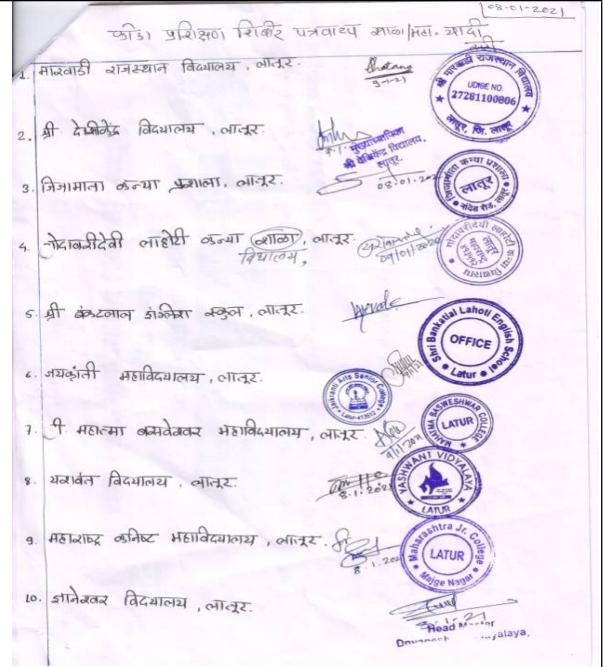 08-01-2021
क्रीडा प्रशिक्षण शिबीर पत्रवाटप शाळा/महा. यादी
1. मारवाडी राजस्थान विद्यालय, लातूर.
9-1-21
श्री मारवाडी राजस्थान विद्यालय
UDISE NO.
27281100806
लातूर, जि. लातूर
2. श्री देशिकेंद्र विद्यालय, लातूर.
मुख्याध्यापिका
श्री देशिकेंद्र विद्यालय,
लातूर.
3. जिजामाता कन्या प्रशाला, लातूर.
08.01.202
जिजामाता कन्या प्रशाला
लातूर
4. गोदावरीदेवी लाहोटी कन्या शाळा, लातूर.
विद्यालय,
09/01/2021
गोदावरी देवी लाहोटी कन्या विद्यालय
5. श्री बंकटलाल इंग्लिश स्कूल, लातूर.
Shri Bankatlal Lahoti English School
OFFICE
Latur
6. जयक्रांती महाविद्यालय, लातूर.
Jaikranti Arts Senior College
7. महात्मा बसवेश्वर महाविद्यालय, लातूर.
9/1/2021
MAHATMA BASWESHWAR COLLEGE
LATUR
8. यशवंत विद्यालय, लातूर.
8.1.2021
YASHWANT VIDYALAYA
LATUR
9. महाराष्ट्र कनिष्ट महाविद्यालय, लातूर.
8.1.202
Maharashtra Jr. College
LATUR
Majge Nagar
10. ज्ञानेश्वर विद्यालय, लातूर.
Head Master